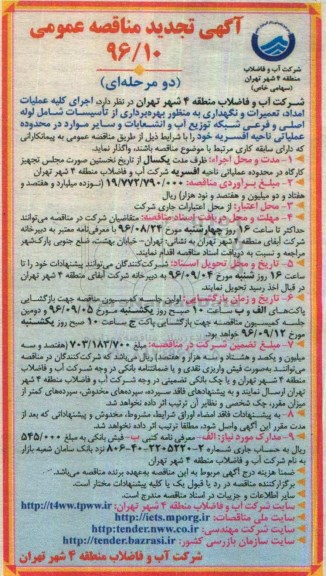 آگهی تجدید مناقصه عمومی
۹۶/۱۰
(دو مرحله‌ای)
شرکت آب و فاضلاب
منطقه ۴ شهر تهران
(سهامی خاص)
شرکت آب و فاضلاب منطقه ۴ شهر تهران در نظر دارد، اجرای کلیه عملیات
امداد، تعمیرات و نگهداری به منظور بهره‌برداری از تأسیسات شامل لوله
اصلی و فرعی شبکه توزیع آب و انشعابات و سایر موارد در محدوده
عملیاتی ناحیه افسریه خود را با شرایط ذیل از طریق مناقصه عمومی به پیمانکارانی
که دارای سابقه کاری مرتبط با موضوع مناقصه باشند، واگذار نماید.
۱- مدت و محل اجراء: ظرف مدت یکسال از تاریخ نخستین صورت مجلس تجهیز
کارگاه در محدوده عملیاتی ناحیه افسریه شرکت آب و فاضلاب منطقه ۴ شهر تهران
۲- مبلغ برآوردی مناقصه: ۱۹/۷۷۲/۷۹۰/۰۰۰ (نوزده میلیارد و هفتصد و
هفتاد و دو میلیون و هفتصد و نود هزار) ریال
۳- محل اعتبار: از محل اعتبارات جاری شرکت
۴- مهلت و محل دریافت اسناد مناقصه: متقاضیان شرکت در مناقصه می‌توانند
حداکثر تا ساعت ۱۶ روز چهارشنبه مورخ ۹۶/۰۸/۲۴ با معرفی‌نامه معتبر به دبیرخانه
شرکت آبفای منطقه ۴ شهر تهران به نشانی: تهران- خیابان بهشت، ضلع جنوبی پارک‌شهر
مراجعه و نسبت به دریافت اسناد مناقصه اقدام نمایند.
۵- تاریخ و محل تحویل اسناد: شرکت‌کنندگان می‌توانند پیشنهادات خود را تا
ساعت ۱۶ روز شنبه مورخ ۹۶/۰۹/۰۴ به دبیرخانه شرکت آبفای منطقه ۴ شهر تهران
در قبال اخذ رسید تحویل نمایند.
۶- تاریخ و زمان بازگشایی: اولین جلسه کمیسیون مناقصه جهت بازگشایی
پاکت‌های الف و ب ساعت ۱۰ صبح روز یکشنبه مورخ ۹۶/۰۹/۰۵ و دومین
جلسه کمیسیون مناقصه جهت بازگشایی پاکت ج ساعت ۱۰ صبح روز یکشنبه
مورخ ۹۶/۰۹/۱۲ خواهد بود.
۷- مبلغ تضمین شرکت در مناقصه: مبلغ ۷۰۳/۱۸۳/۷۰۰ (هفتصد و سه
میلیون و یکصد و هشتاد و سه هزار و هفتصد) ریال می‌باشد که شرکت‌کنندگان در مناقصه
می‌توانند به‌صورت فیش واریزی نقدی و یا ضمانتنامه بانکی در وجه شرکت آب و فاضلاب
منطقه ۴ شهر تهران و یا چک بانکی تضمینی در وجه شرکت آب و فاضلاب منطقه ۴ شهر
تهران ارسال نمایند و به پیشنهادهای فاقد سپرده، سپرده‌های مخدوش، سپرده‌های کمتر از
میزان مقرر، چک شخصی و نظایر آن ترتیب اثر داده نخواهد شد.
۸- به پیشنهادات فاقد امضاء اوراق شرایط، مشروط، مخدوش و پیشنهاداتی که بعد از
مدت مقرر این آگهی واصل شود، مطلقا ترتیب اثر داده نخواهد شد.
۹- مدارک مورد نیاز: الف- معرفی نامه کتبی ب- فیش بانکی به مبلغ ۵۴۵/۰۰۰
ریال به حساب جاری شماره نزد بانک سامان شعبه بازار
به نام شرکت آب و فاضلاب منطقه ۴ شهر تهران.
ضمنا هزینه درج آگهی مربوط به این مناقصه به‌عهده برنده مناقصه می‌باشد.
برگزارکننده مناقصه در رد یا قبول یک یا کلیه پیشنهادات مختار است.
سایر اطلاعات و جزییات در اسناد مناقصه مندرج است.
سایت شرکت آب و فاضلاب منطقه ۴ تهران: http://t4ww.tpww.ir
سایت ملی مناقصات: http://iets.mporg.ir
سایت شرکت مهندسی: http://tender.nww.co.ir
سایت سازمان بازرسی کشور: http://tender.bazrasi.ir
شرکت آب و فاضلاب منطقه ۴ شهر تهران